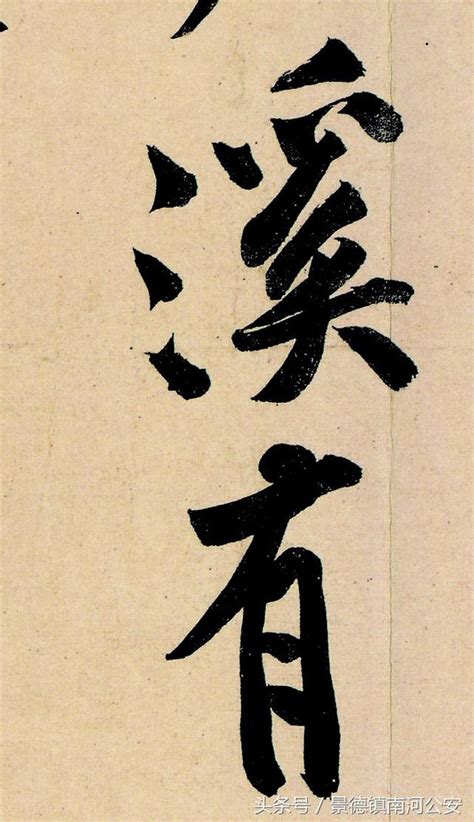 溪
有
头条号/景德镇南河公安